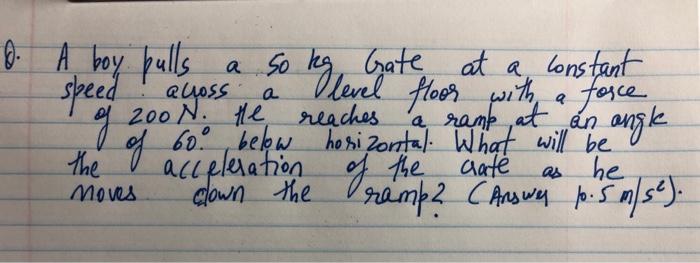 Q. A boy pulls a 50 kg Crate at a constant
speed across a level floor with a force
of 200 N. He reaches a ramp at an angle
of 60° below horizontal. What will be
the acceleration of the crate as he
moves down the ramp? (Answer 10.5 m/s²).